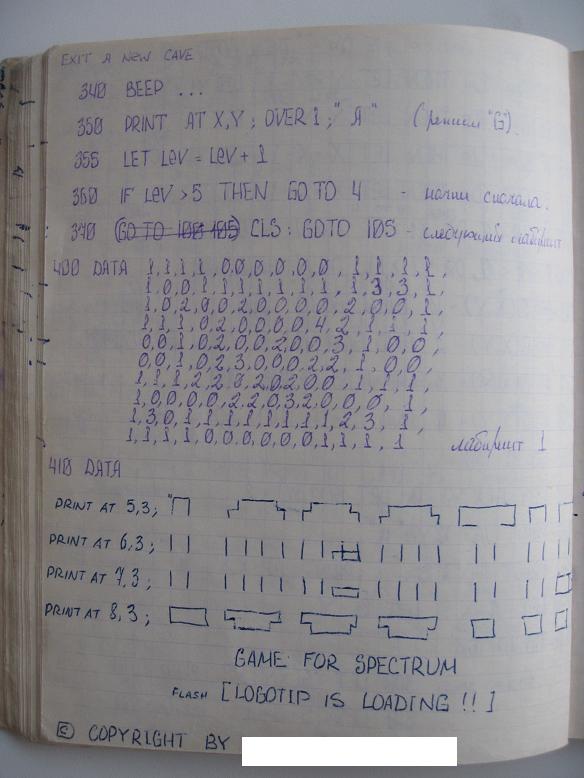 EXIT A NEW CAVE
340 BEEP ...
350 PRINT AT X,Y; OVER 1; "Я" (режим "G")
355 LET LEV = LEV + 1
360 IF LEV > 5 THEN GO TO 4 - начни сначала.
370 (GO TO 100 105) CLS: GOTO 105 - следующий лабиринт
400 DATA 1,1,1,1,0,0,0,0,0,0,1,1,1,1,
1,0,0,1,1,1,1,1,1,1,1,3,3,1,
1,0,2,0,0,2,0,0,0,0,2,0,0,1,
1,1,1,0,2,0,0,0,0,4,2,1,1,1,
0,0,1,0,2,0,0,2,0,0,3,1,0,0,
0,0,1,0,2,3,0,0,0,2,2,1,0,0,
1,1,1,2,2,0,2,0,2,0,0,1,1,1,
1,0,0,0,0,2,2,0,3,2,0,0,0,1,
1,3,0,1,1,1,1,1,1,1,1,2,3,1,
1,1,1,1,0,0,0,0,0,0,1,1,1,1 лабиринт 1
410 DATA
PRINT AT 5,3; "
PRINT AT 6,3;
PRINT AT 7,3;
PRINT AT 8,3;
GAME FOR SPECTRUM
FLASH [LOGOTIP IS LOADING !!]
© COPYRIGHT BY